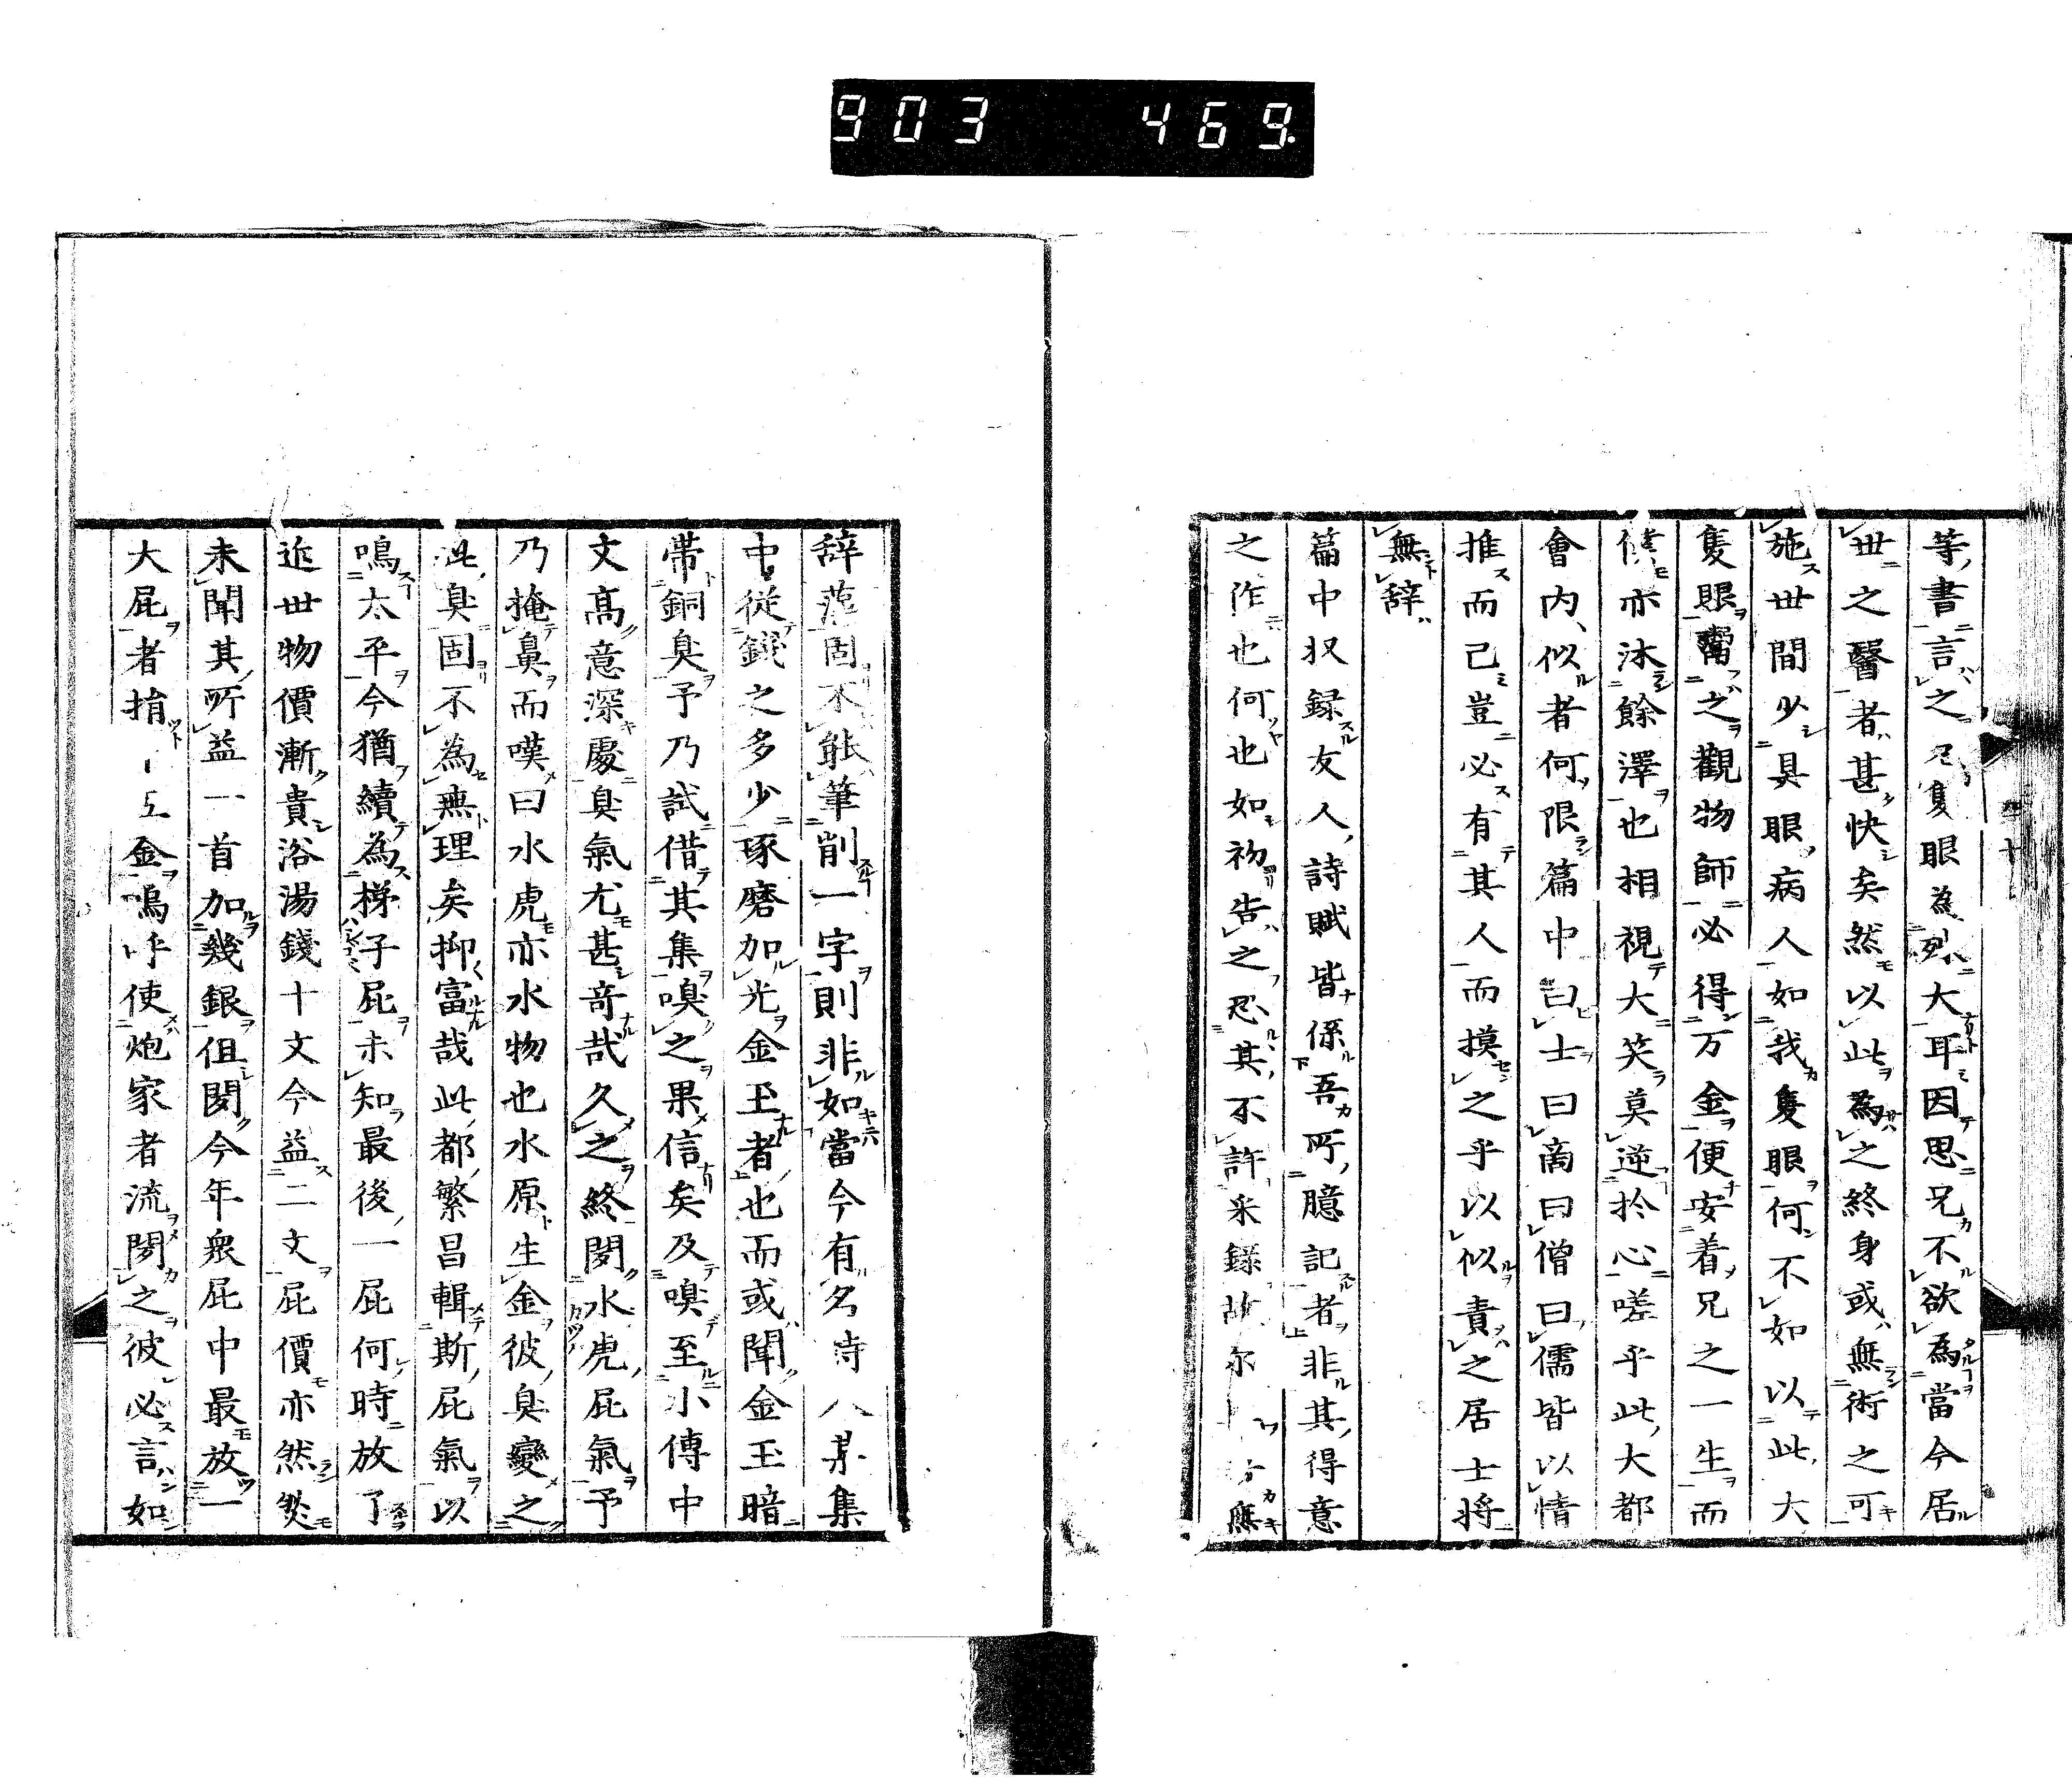 903 469.
等書言之只隻眼為烈大耳因思兄不欲為當今居
世之醫者甚快矣然以此為之終身或無術之可
施世間少具眼病人如我隻眼何不如以此大
隻眼賣之觀物師必得万金便安着兄之一生而
僕亦沐餘澤也相視大笑莫逆於心嗟乎此大都
會内似者何限篇中曰士曰商曰僧曰儒皆以情
推而己豈必有其人而摸之乎以似責之居士将
無辞
篇中収録友人詩賦皆係吾所臆記者非其得意
之作也何也如初告之恐其不許采錄故尓 應
辞 固不能筆削一字則非如當今有名詩人某集
中從錢之多少琢磨加光金玉者也而或聞金玉暗
帯銅臭予乃試借其集嗅之果信矣及嗅至小傳中
文髙意深處臭氣尤甚奇哉久之終閲水虎屁氣予
乃掩鼻而嘆曰水虎亦水物也水原生金彼臭變之
此臭固不為無理矣抑富哉此都繁昌輯斯屁氣以
鳴太平今猶續為梯子屁未知最後一屁何時放了
近世物價漸貴浴湯錢十文今益二文屁價亦然然
未聞其所益一首加幾銀但閲今年衆屁中最放一
大屁者捐 金嗚呼使炮家者流閲之彼必言如